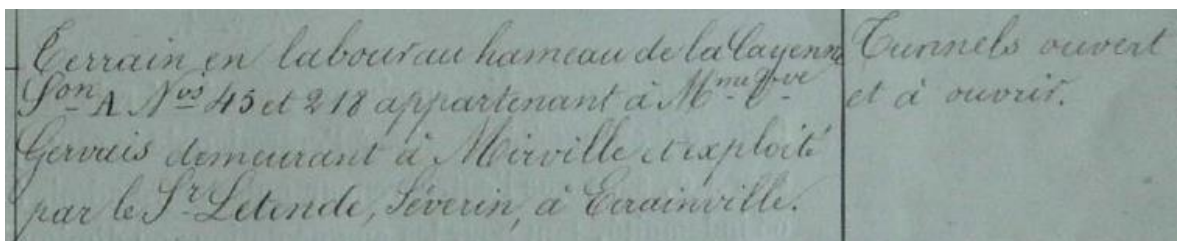 Terrain en labour au hameau de la Cayenne
Son A Nos 45 et 218 appartenant à Mme Vve
Gervais demeurant à Mirville et exploité
par le Sr Letende, Séverin, à Ecrainville.
Tunnels ouvert
et à ouvrir.